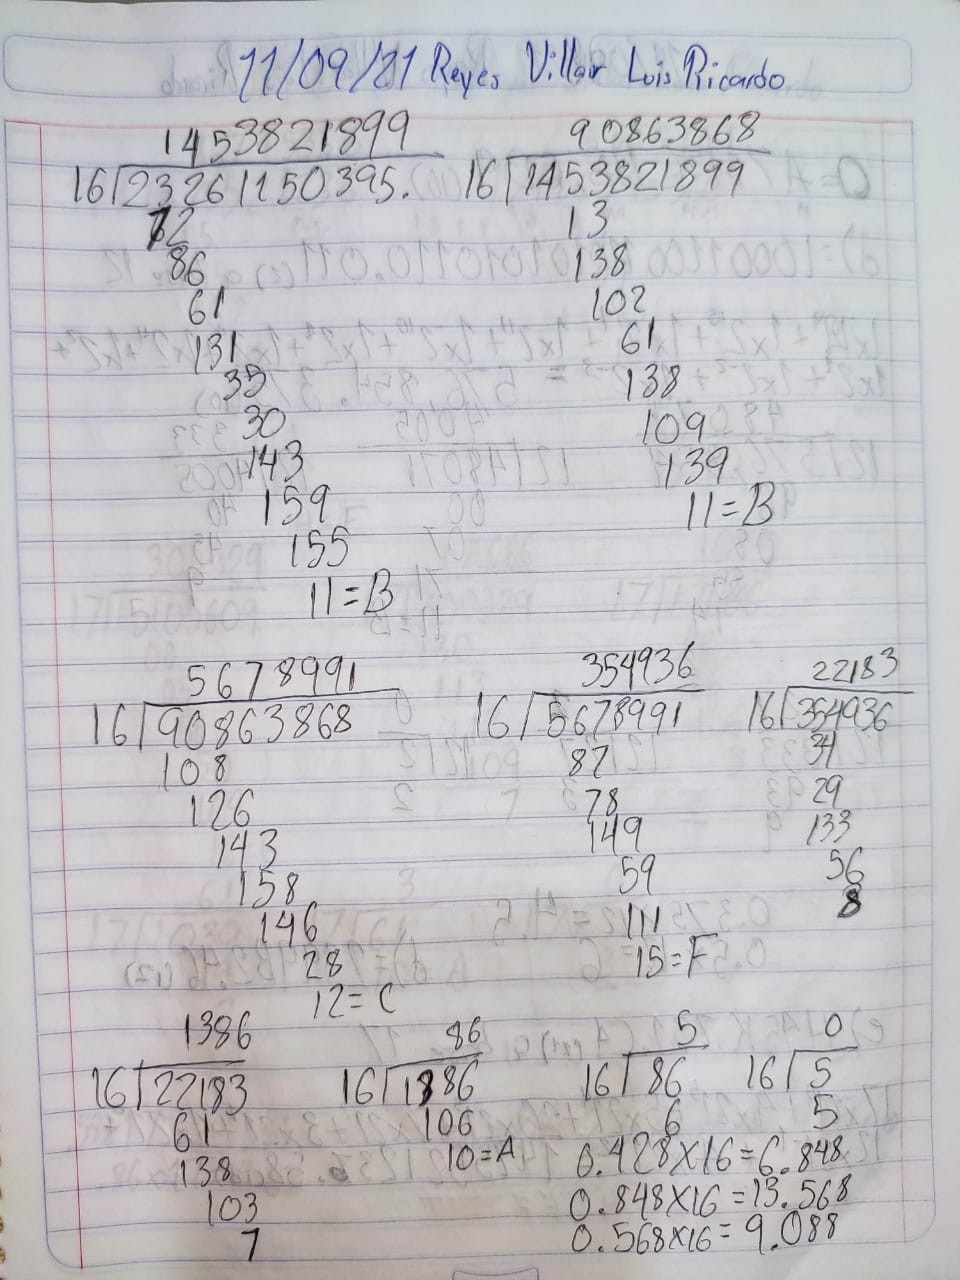 11/09/21 Reyes Villar Luis Ricardo
1453821899
16 23261150395.
72
86
61
131
35
30
143
159
155
11=B
90863868
16 1453821899
13
138
102
61
138
109
139
11=B
5678991
16 90863868
108
126
143
158
146
28
12=C
354936
16 5678991
87
78
149
59
111
15=F
22183
16 354936
34
29
133
56
8
1386
16 22183
61
138
103
7
86
16 1386
106
10=A
5
16 86
6
0
16 5
5
0.428X16=6.848
0.848X16=13.568
0.568X16=9.088